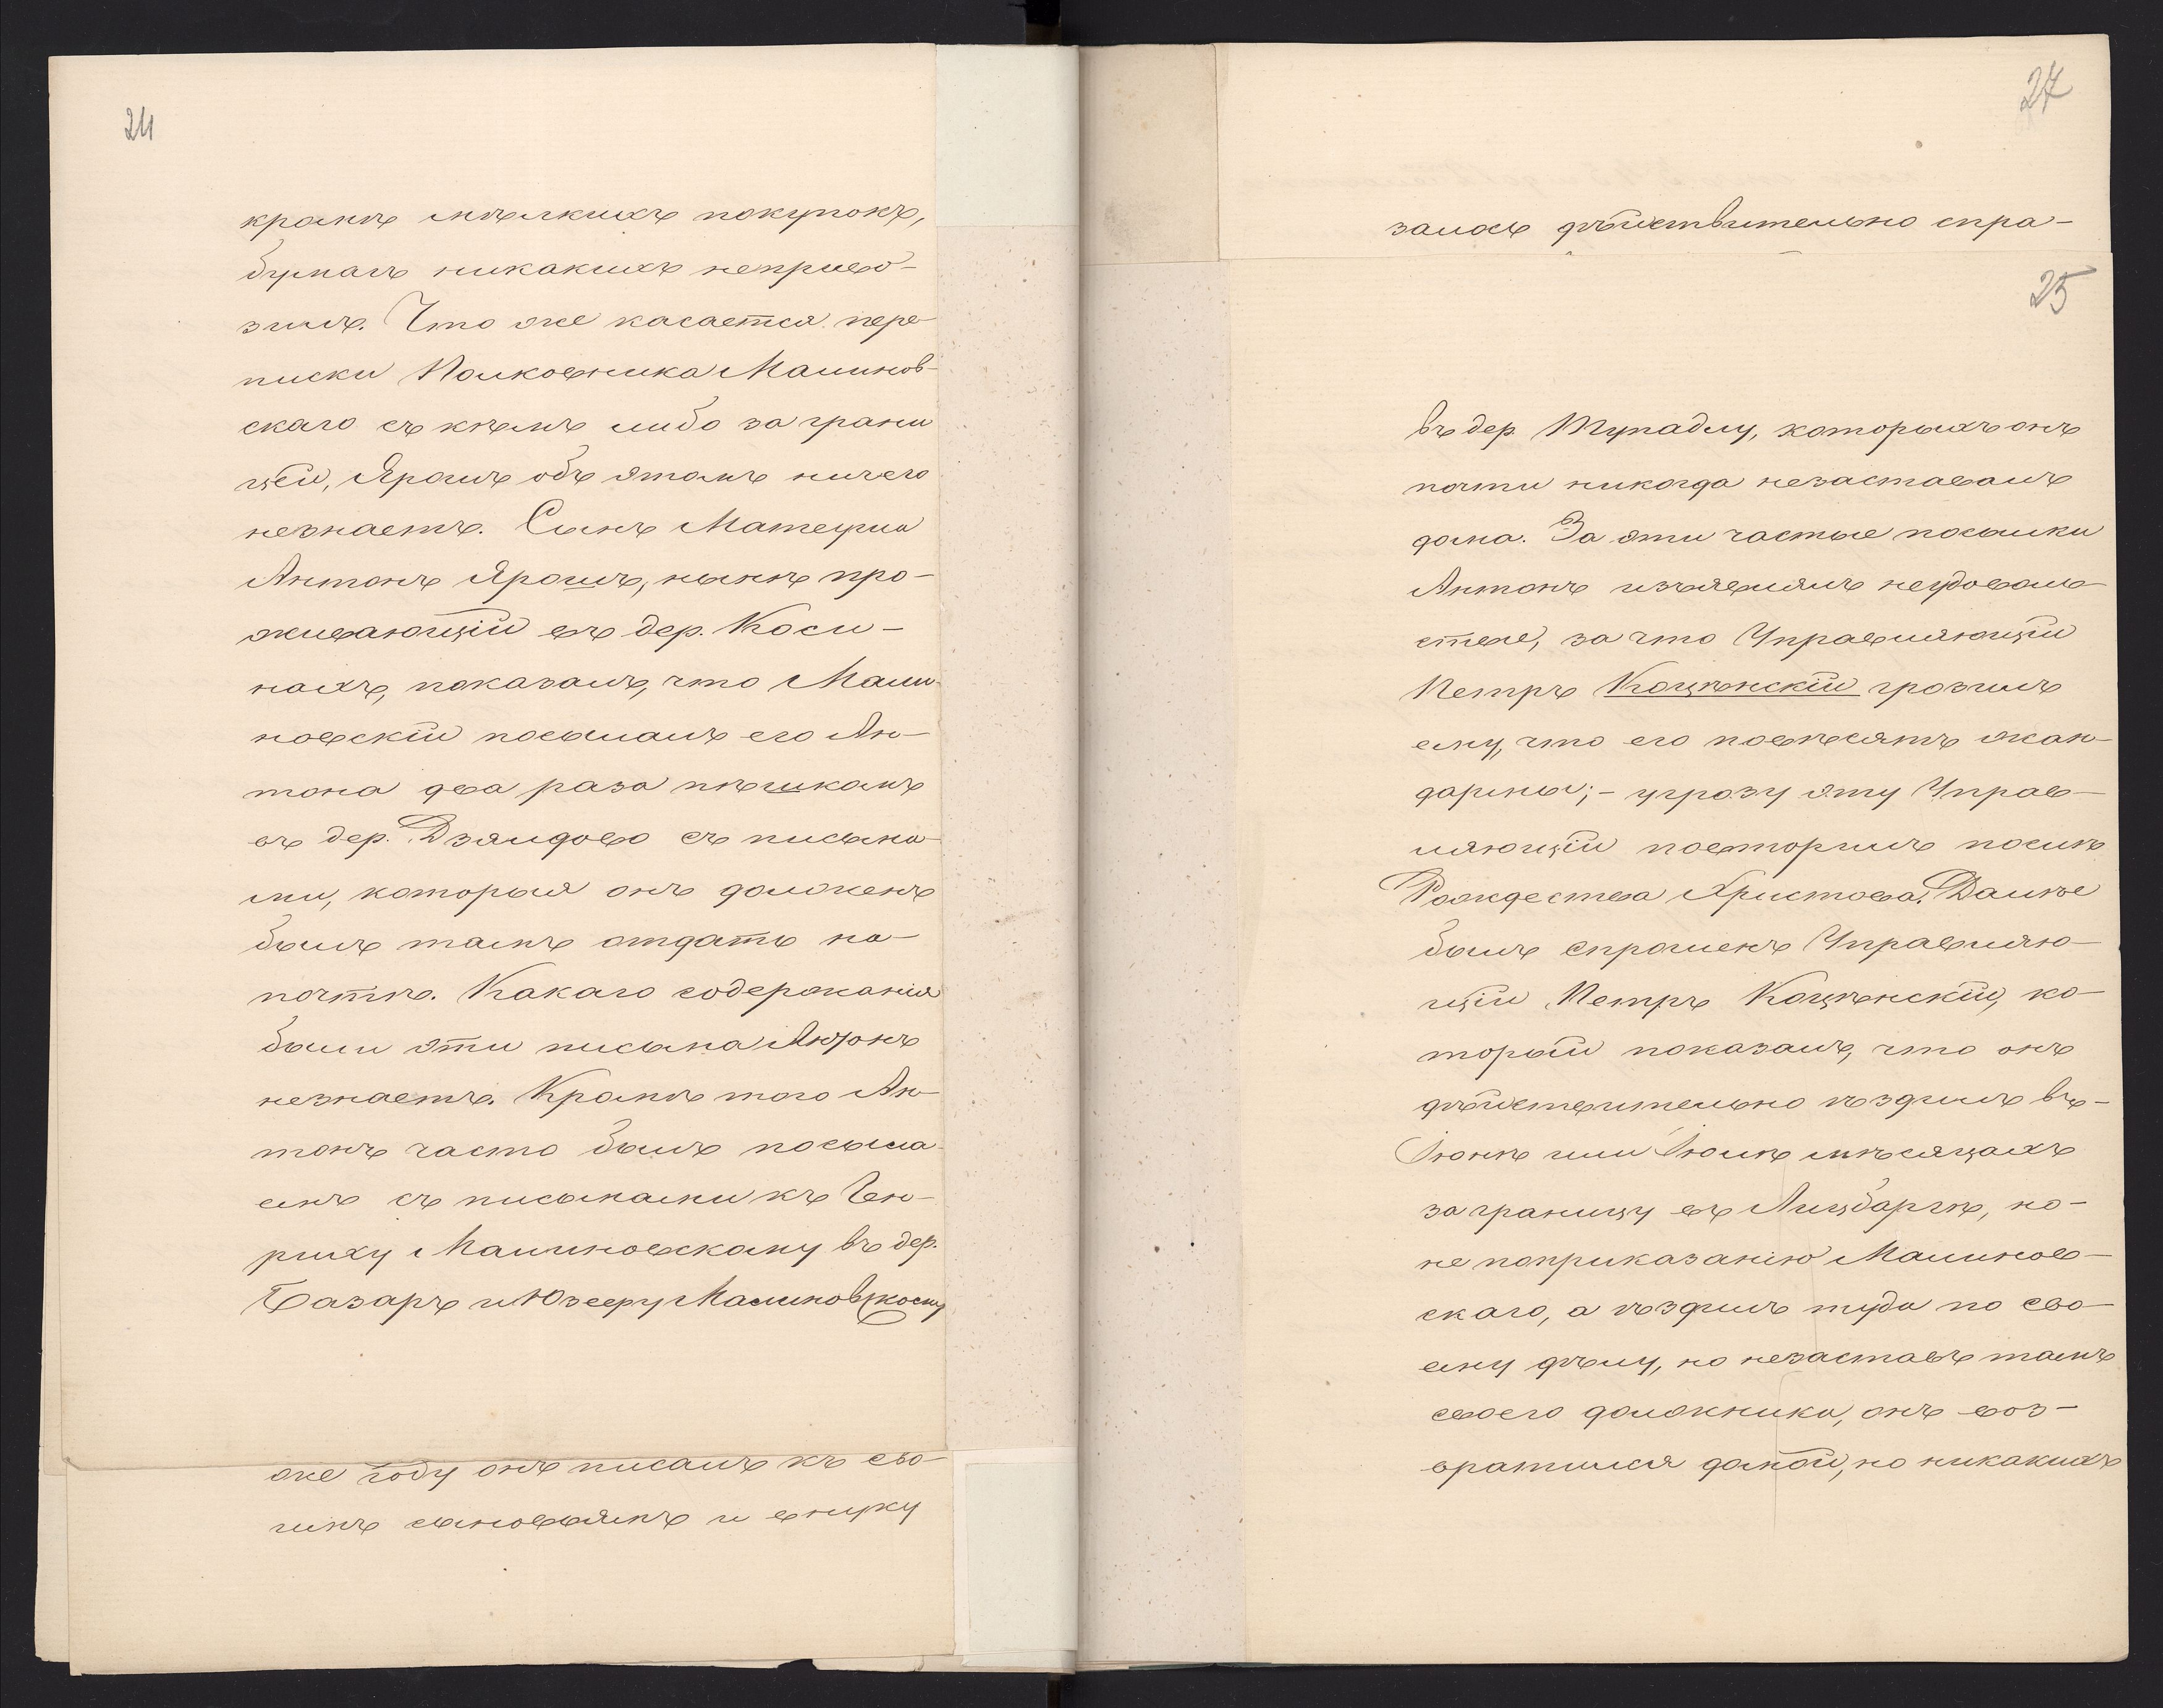 24
кромѣ мѣлкихъ покупокъ,
бумагъ никакихъ неприво-
зилъ. Что же касается пере-
писки Полковника Малинов-
скаго съ кѣмъ либо за грани
цей, Ярошъ объ этомъ ничего
незнаетъ. Сынъ Матеуша
Антонъ Ярошъ, нынѣ про-
живающій въ дер. Коси-
нахъ, показалъ, что Мали-
новскій посылалъ его Ан-
тона два раза пѣшкомъ
въ дер. Дзялдово съ письма-
ми, которыя онъ долженъ
былъ тамъ отдать на-
почтѣ. Какаго содержанія
были эти письма Антонъ
незнаетъ. Кромѣ того Ан-
тонъ часто былъ посыла-
емъ съ письмами къ Ген-
риху Малиновскому въ дер.
Базаръ и Юзефу Малиновскому
же году онъ писалъ къ сво-
имъ сыновьямъ и внуку
27
залось дѣйствительно спра-
25
въ дер. Тупадлу, которыхъ онъ
почти никогда незаставалъ
дома. За эти частые посылки
Антонъ изъявлялъ неудоволь-
ствіе, за что Управляющій
Петръ Коцѣнскій грозилъ
ему, что его повѣсятъ жан-
дармы; - угрозу эту Управ-
ляющій повторилъ послѣ
Рождества Христова. Далѣе
былъ спрошенъ Управляю-
щій Петръ Коцѣнскій, ко-
торый показалъ, что онъ
дѣйствительно ѣздилъ въ-
Іюнѣ или Іюлѣ мѣсяцахъ
за границу въ Лицбаргъ, но-
не поприказанію Малинов-
скаго, а ѣздилъ туда по сво-
ему дѣлу, но незаставъ тамъ
своего должника, онъ воз-
вратился домой, но никакихъ